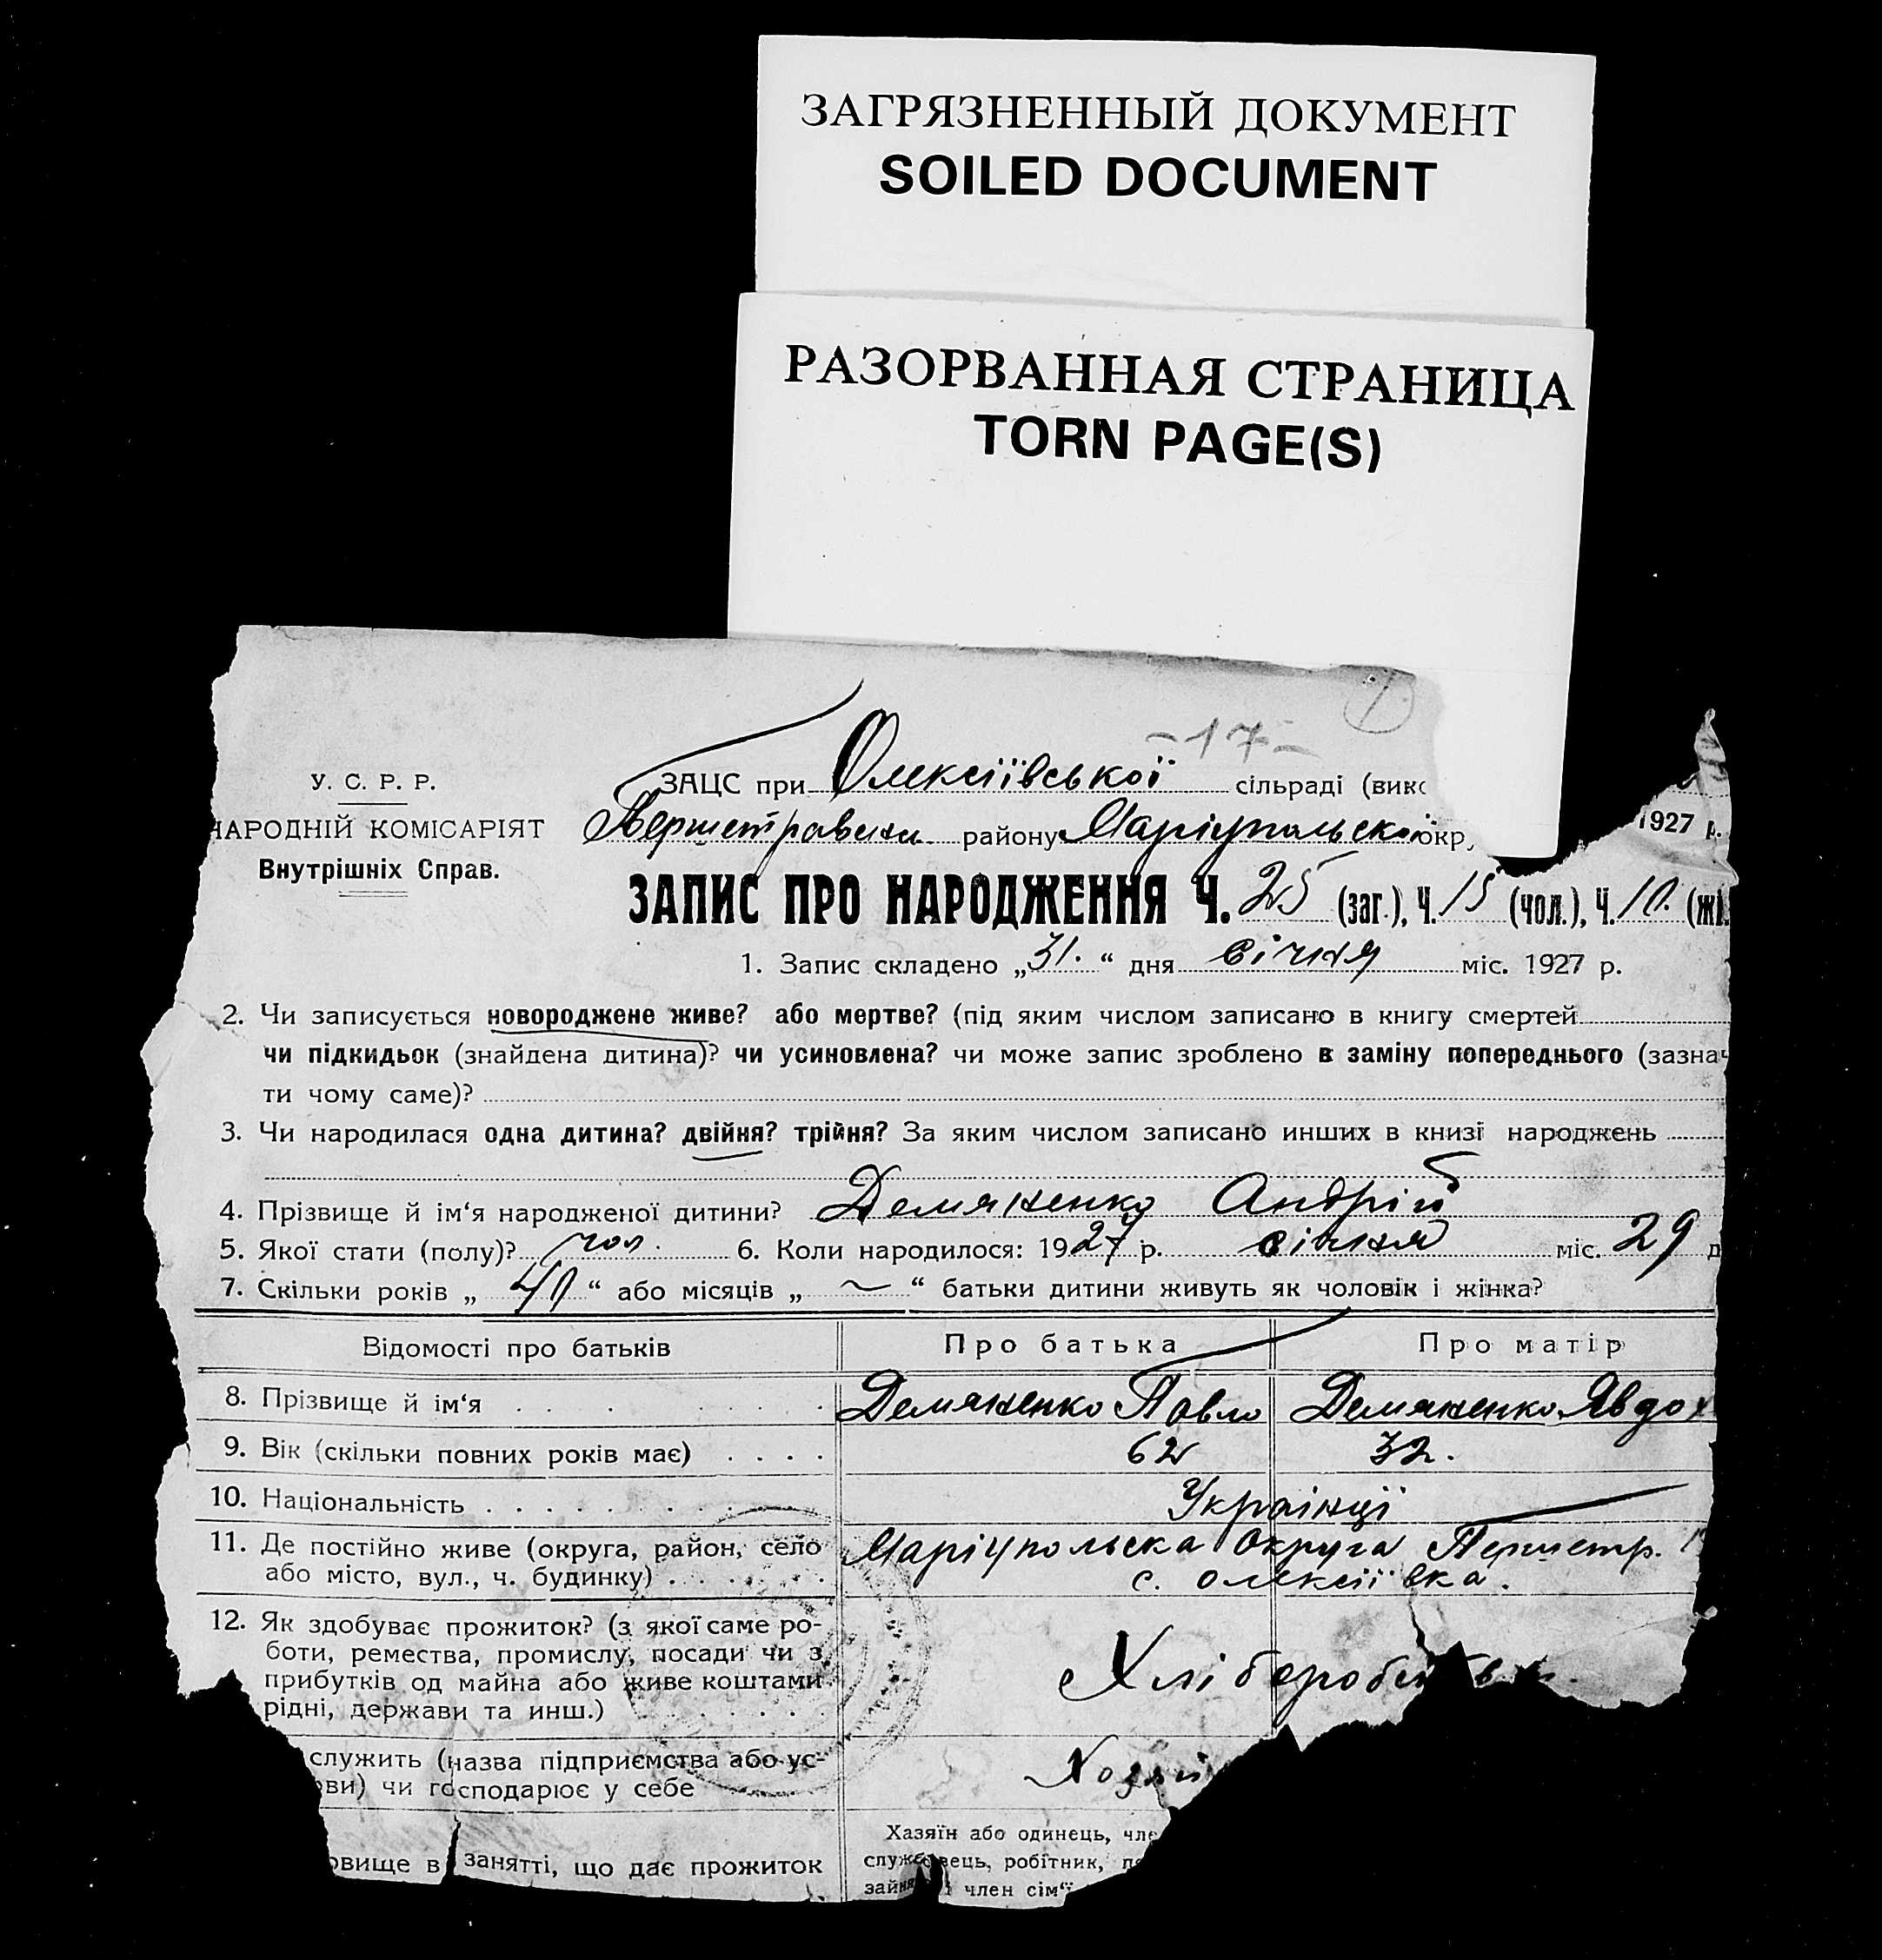 ЗАГРЯЗНЕННЫЙ ДОКУМЕНТ
SOILED DOCUMENT
РАЗОРВАННАЯ СТРАНИЦА
TORN PAGE(S)
-17-
У. С. Р. Р.
НАРОДНІЙ КОМІСАРІЯТ
Внутрішніх Справ.
ЗАЦС при Олексіївської сільраді (вик
району Маріупольської окр
1927 р.
ЗАПИС ПРО НАРОДЖЕННЯ Ч. 25 (заг.), Ч. 15 (чол.), Ч. 10. (жі
1. Запис складено „31.“ дня січня міс. 1927 р.
2. Чи записується новороджене живе? або мертве? (під яким числом записано в книгу смертей
чи підкидьок (знайдена дитина)? чи усиновлена? чи може запис зроблено в заміну попереднього (зазнач
ти чому саме)?
3. Чи народилася одна дитина? двійня? трійня? За яким числом записано инших в книзі народжень
4. Прізвище й ім‘я народженої дитини? Демяненко Андрій
5. Якої стати (полу)? чол. 6. Коли народилося: 1927 р. січня міс. 29 д
7. Скільки років „ “ або місяців „ ~ “ батьки дитини живуть як чоловік і жінка?
Відомості про батьків Про батька Про матір
8. Прізвище й ім‘я Демяненко Павло Демяненко Явдох
9. Вік (скільки повних років має) 62 32.
10. Національність Українці
11. Де постійно живе (округа, район, село Маріупольска Округа Першотр.
або місто, вул., ч. будинку) с. Олексіївка.
12. Як здобуває прожиток? (з якої саме ро-
боти, ремества, промислу, посади чи з
прибутків од майна або живе коштами Хліборобств
рідні, держави та инш.)
служить (назва підприємства або ус-
ови) чи господарює у себе Хозяї
Хазяїн або одинець, чле
овище в занятті, що дає прожиток службовець, робітник,
член сім‘ї